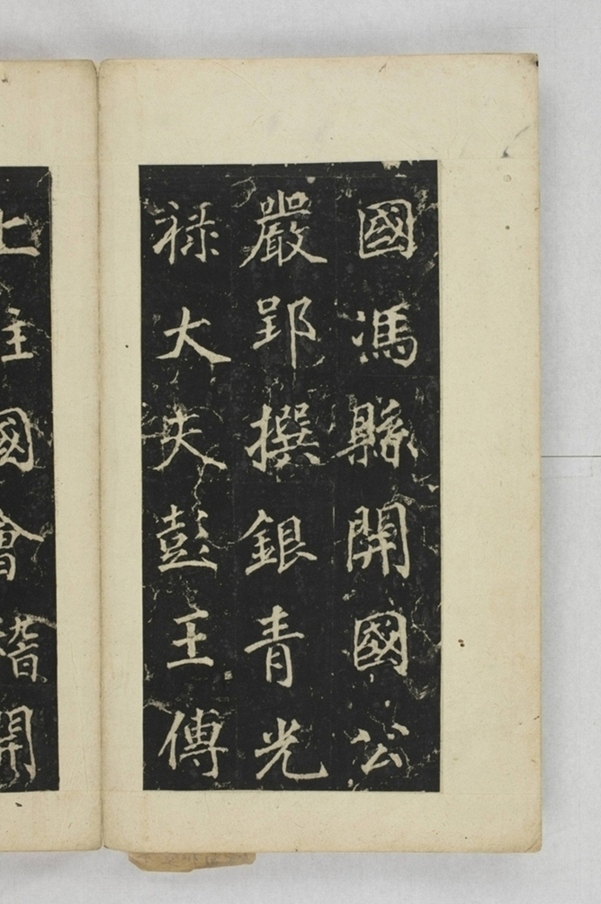 國馮縣開國公
嚴郢撰銀青光
禄大夫彭王傅
上柱國會稽開